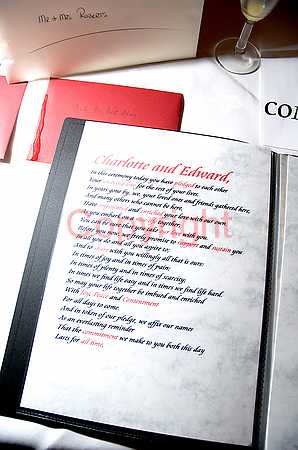 Mr & Mrs Roberts
CON
Charlotte and Edward,
In this ceremony today you have pledged to each other
Your for the rest of your lives.
In years gone by, we, your loved ones and friends gathered here,
And many others who cannot be here,
Have and your love with our
you embark on a together,
You can be
freely promise to and sustain you
you do and all you aspire to;
And to share with you willingly all that is ours:
In times of joy and in times of pain;
In times of plenty and in times of scarcity;
In times we find life easy and in times we find life hard.
So may your life together be imbued and enriched
With Joy, Peace and Contentment
For all days to come.
And in token of our pledge, we affix our names
As an everlasting reminder
That the commitment we make to you both this day
Lasts for all time.
Copyright